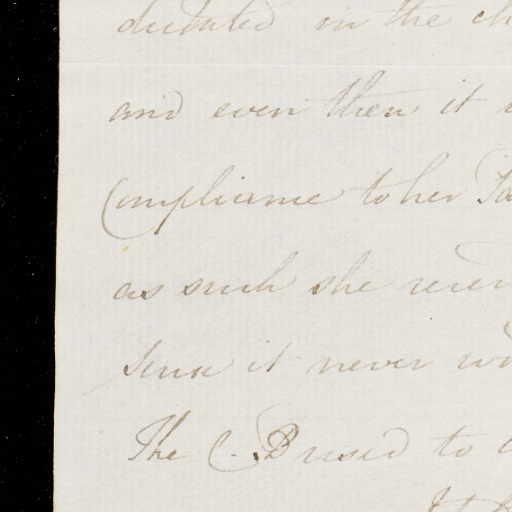 dictated in the ch
and even then it
Compliance to her
as such she
sense it never
The C. B used to